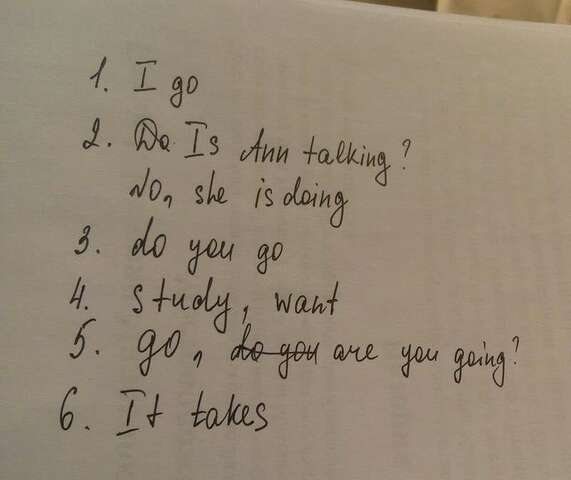 1. I go
2. Do Is Ann talking?
No, she is doing
3. do you go
4. study, want
5. go, do you are you going?
6. It takes